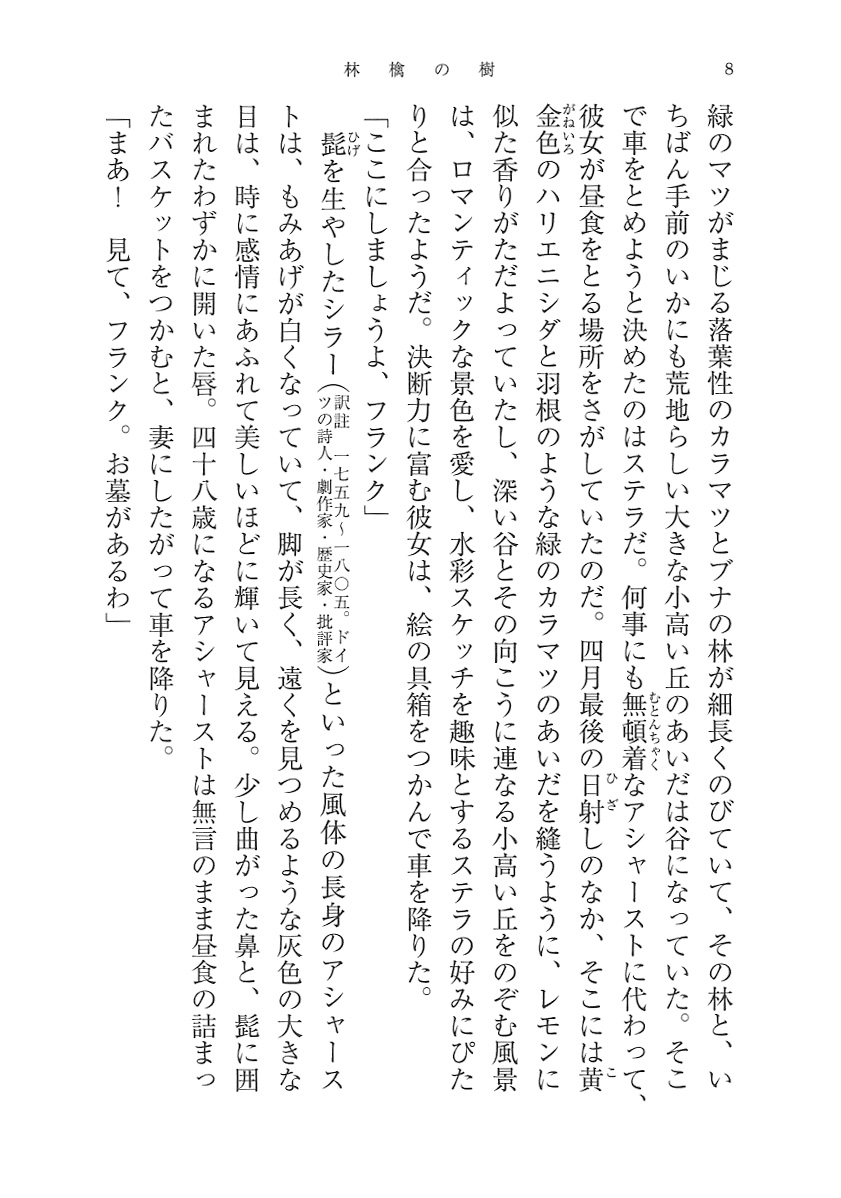 林檎の樹
8
緑のマツがまじる落葉性のカラマツとブナの林が細長くのびていて、その林と、い
ちばん手前のいかにも荒地らしい大きな小高い丘のあいだは谷になっていた。そこ
で車をとめようと決めたのはステラだ。何事にも無頓着なアシャーストに代わって、
むとんちゃく
彼女が昼食をとる場所をさがしていたのだ。四月最後の日射しのなか、そこには黄
ひざ
こ
金色のハリエニシダと羽根のような緑のカラマツのあいだを縫うように、レモンに
がねいろ
似た香りがただよっていたし、深い谷とその向こうに連なる小高い丘をのぞむ風景
は、ロマンティックな景色を愛し、水彩スケッチを趣味とするステラの好みにぴた
りと合ったようだ。決断力に富む彼女は、絵の具箱をつかんで車を降りた。
「ここにしましょうよ、フランク」
髭を生やしたシラー(訳註 一七五九〜一八〇五。ドイツの詩人・劇作家・歴史家・批評家)といった風体の長身のアシャース
ひげ
トは、もみあげが白くなっていて、脚が長く、遠くを見つめるような灰色の大きな
目は、時に感情にあふれて美しいほどに輝いて見える。少し曲がった鼻と、髭に囲
まれたわずかに開いた唇。四十八歳になるアシャーストは無言のまま昼食の詰まっ
たバスケットをつかむと、妻にしたがって車を降りた。
「まあ! 見て、フランク。お墓があるわ」